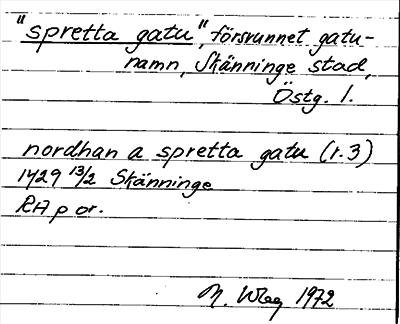 "spretta gatu", försvunnet gatu-
namn, Skänninge stad,
Östg. l.
nordhan a spretta gatu (r.3)
1429 13/2 Skänninge
RA p or.
M. 1972